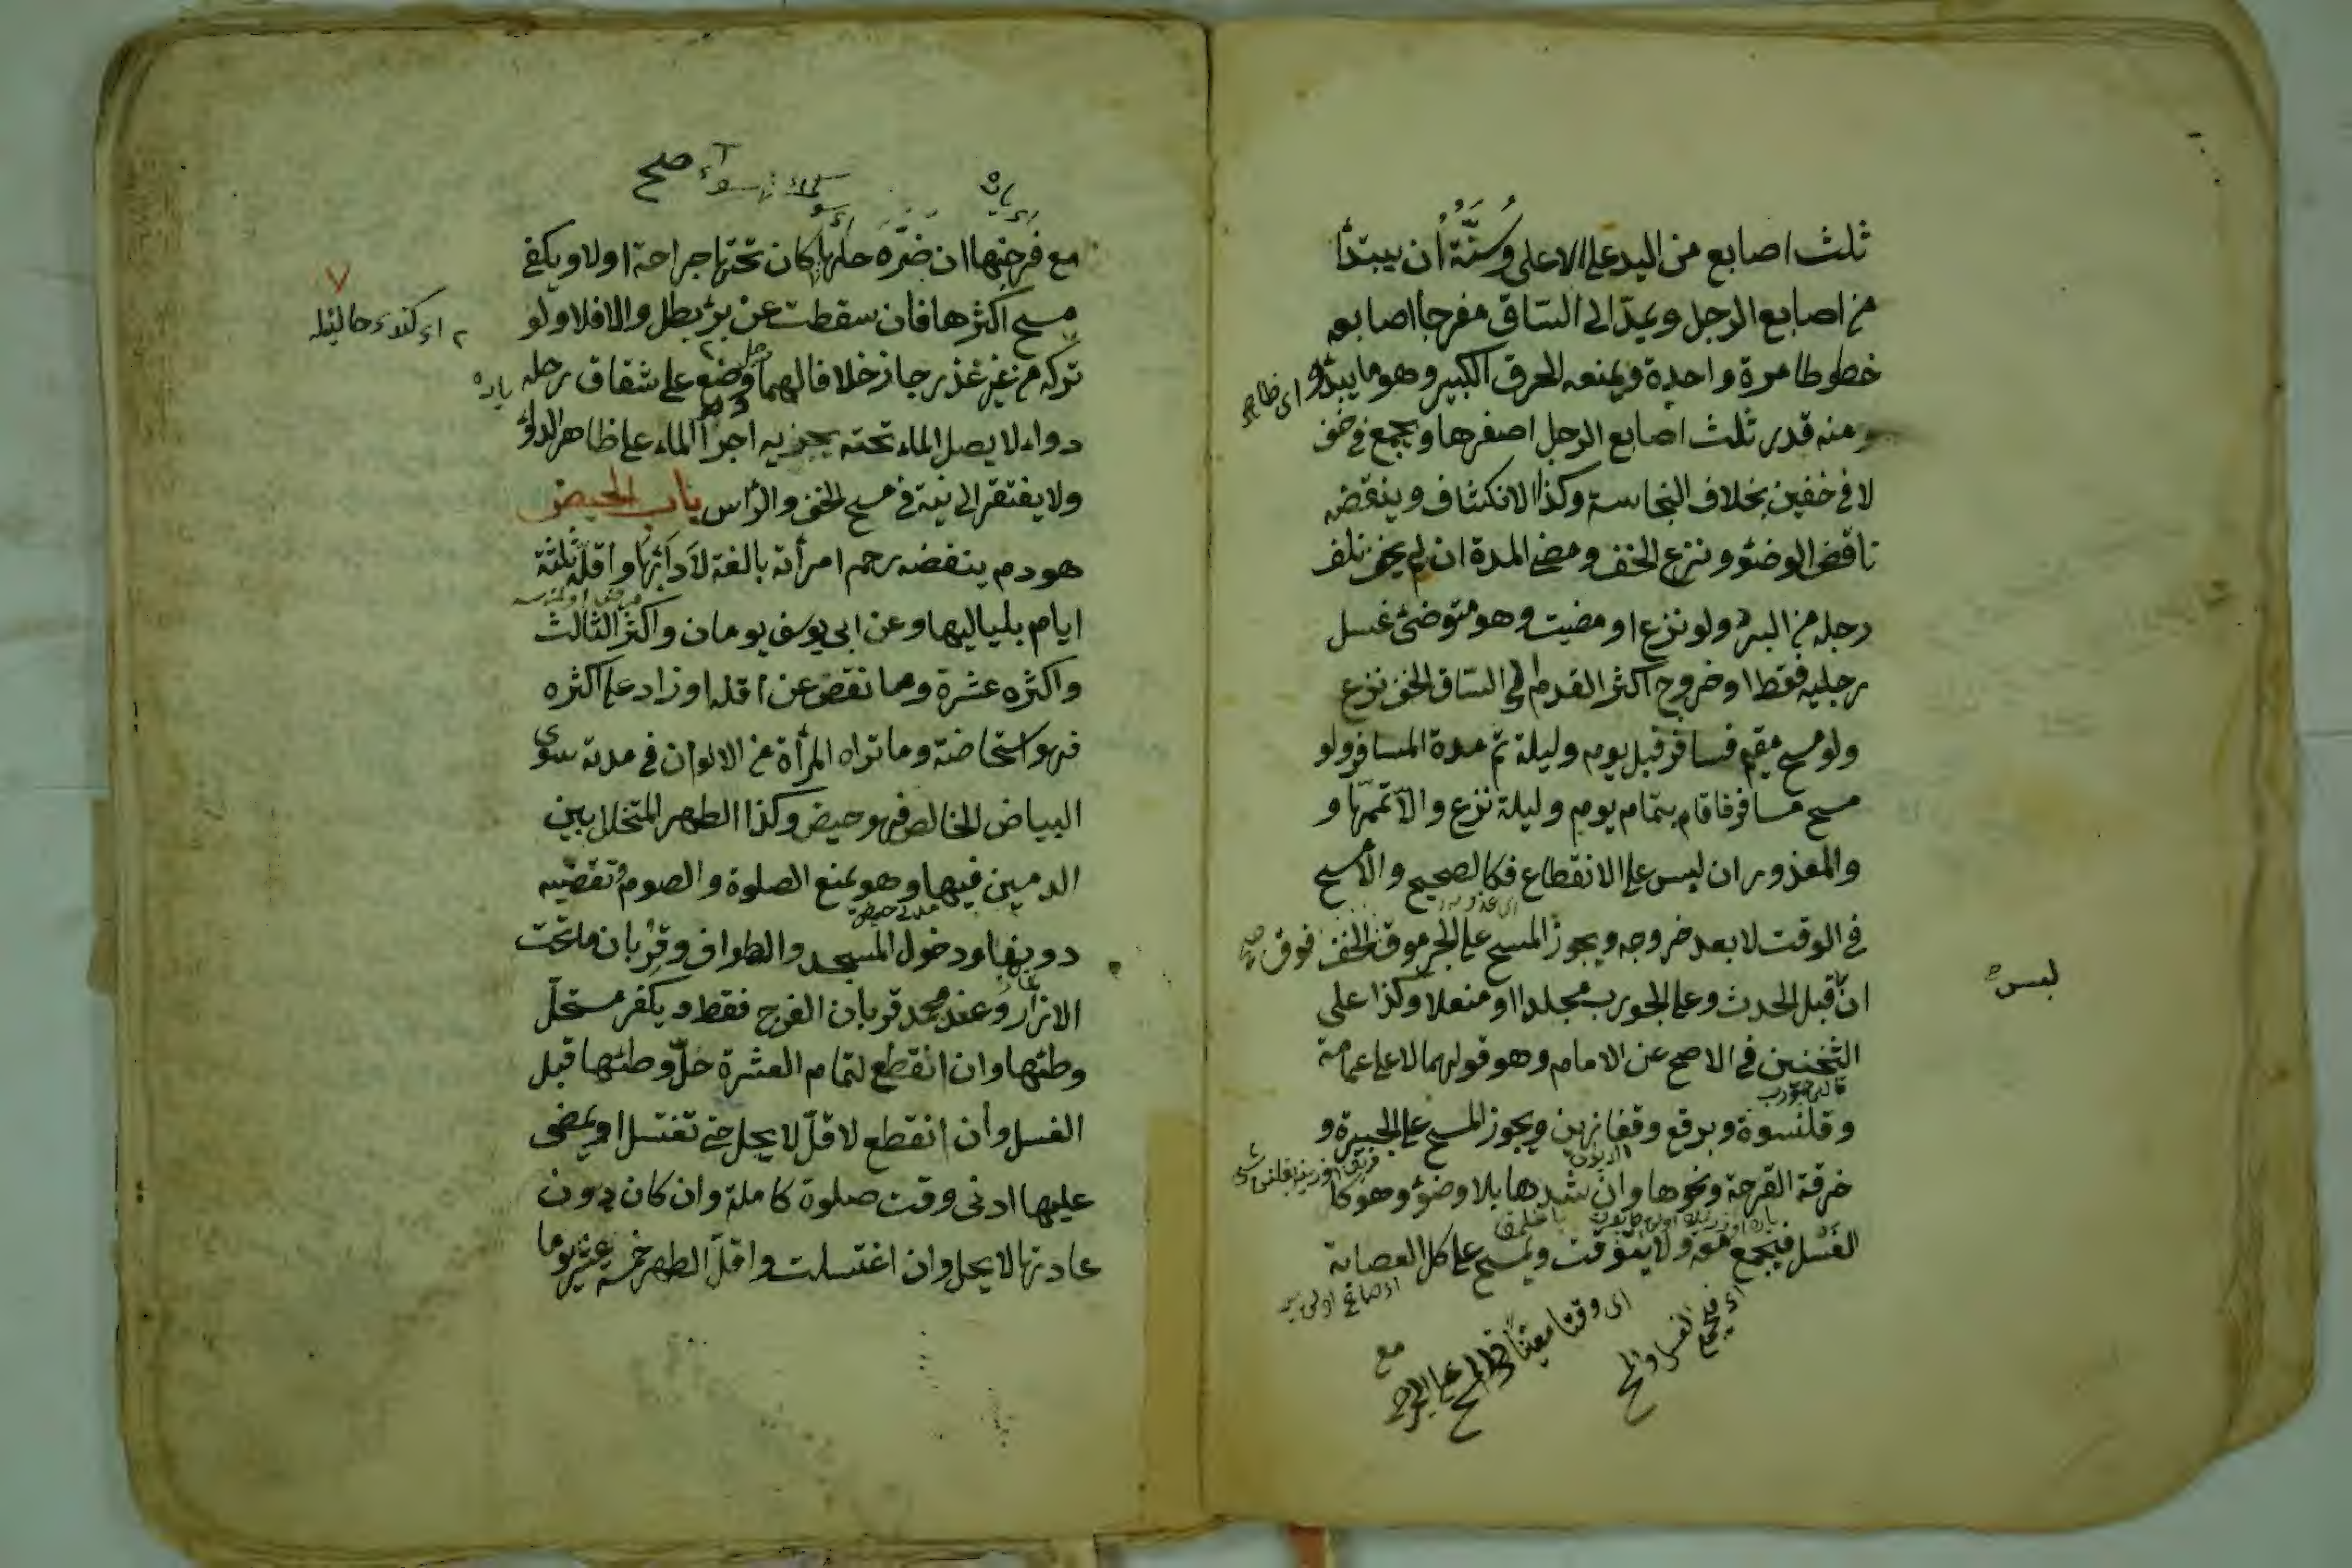 ثلث اصابع من اليد على الاعلى وسنّة ان يبتدأ
من اصابع الرجل ويمدّ الى الساق مفرجا اصابعه
خطوطا مرة واحدة ويمنعه الخرق الكبير وهو ما يبدو
منه قدر ثلث اصابع الرجل اصغرها ويجمع في خف
لا في خفين بخلاف النجاسة وكذا الانكشاف وينقضه
ناقض الوضوء ونزع الخف ومضى المدة ان لم يخف تلف
رجله من البرد ولو نزع او مضيت وهو متوضئ غسل
رجليه فقط او خروج اكثر القدم الى الساق الخف نزع
ولو مسح مقيم فسافر قبل يوم وليلة تم مدة المسافر ولو
مسح مسافر فاقام بتمام يوم وليلة نزع والا تممها و
والمعذور ان لبس على الانقطاع فكالصحيح والا مسح
في الوقت لا بعد خروجه ويجوز المسح على الجرموق الخف فوق
لبسه
ان قبل الحدث وعلى الجورب مجلدا او منعلا وكذا على
الثخنين في الاصح عن الامام وهو قولهما لا على عمامة
وقلنسوة وبرقع وقفازين ويجوز المسح على الجبيرة و
خرقة القرحة ونحوها وان شدها بلا وضوء وهو كا
الغسل فيجمع معه ولا يتوقت ويمسح على كل العصابة
اى وقتا معينا
مع
مع فرجتها ان ضرّه حلها كان تحتها جراحة اولا ويكفى
مسح اكثرها فان سقطت عن برء بطل والا فلا ولو
تركه من غير عذر جاز خلافا لهما وضع على شقاف رجله
دواء لا يصل الماء تحته يجزيه اجراء الماء على ظاهر الدواء
ولا يفتقر الى نية في مسح الخف والرأس باب الحيض
هو دم ينفضه رحم امرأة بالغة لا داء بها واقله ثلثة
ايام بلياليها وعن ابى يوسف يومان واكثر الثالث
واكثره عشرة وما نقض عن اقله او زاد على اكثره
فهو استحاضة وما تراه المرأة من الالوان في مدته سوى
البياض الخالص فهو حيض وكذا الطهر المتخلل بين
الدمين فيها وهو يمنع الصلوة والصوم وتقضيه
دونها ودخول المسجد والطواف وقربان ما تحت
الازار وعند محمد قربان الفرج فقط ويكفر مستحلّ
وطئها وان انقطع لتمام العشرة حلّ وطئها قبل
الغسل وان انقطع لاقلّ لا يحل حتى تغتسل او يمضى
عليها ادنى وقت صلوة كاملة وان كان دون
عادتها لا يحل وان اغتسلت واقلّ الطهر خمسة عشر يوما